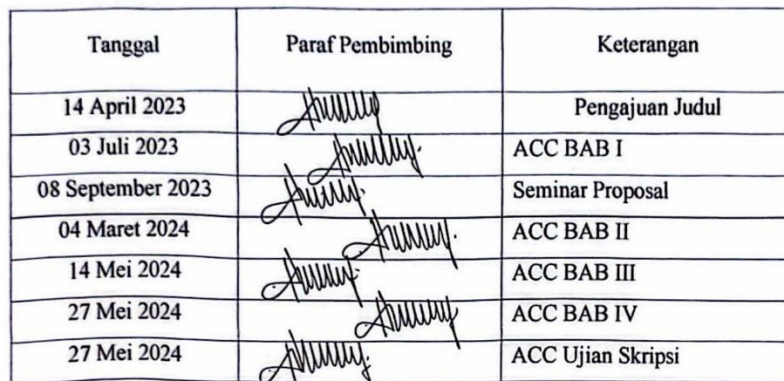 Tanggal Paraf Pembimbing Keterangan
14 April 2023 Pengajuan Judul
03 Juli 2023 ACC BAB I
08 September 2023 Seminar Proposal
04 Maret 2024 ACC BAB II
14 Mei 2024 ACC BAB III
27 Mei 2024 ACC BAB IV
27 Mei 2024 ACC Ujian Skripsi